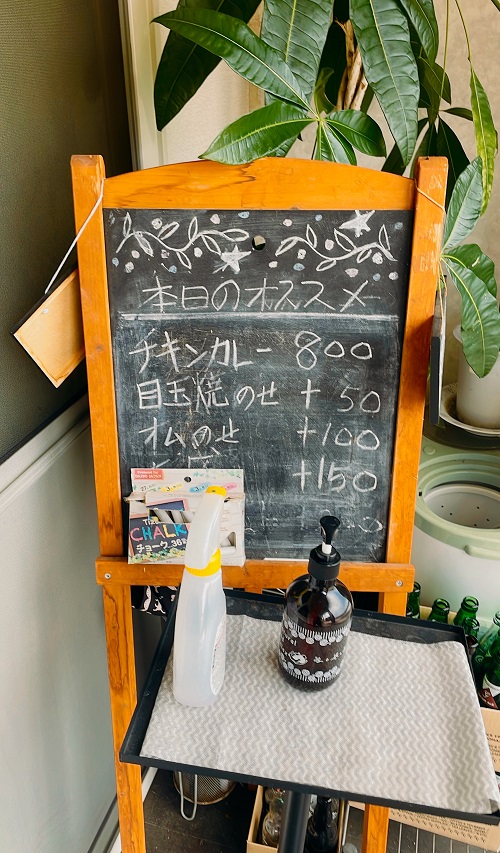 本日のオススメ
チキンカレー 800
目玉焼のせ +50
オムのせ +100
+150
THE CHALK
チョーク